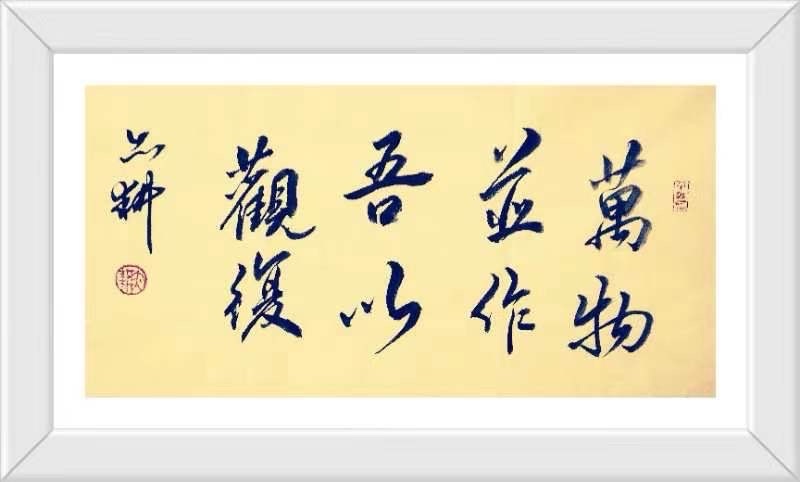 萬物
並作
吾以
觀復